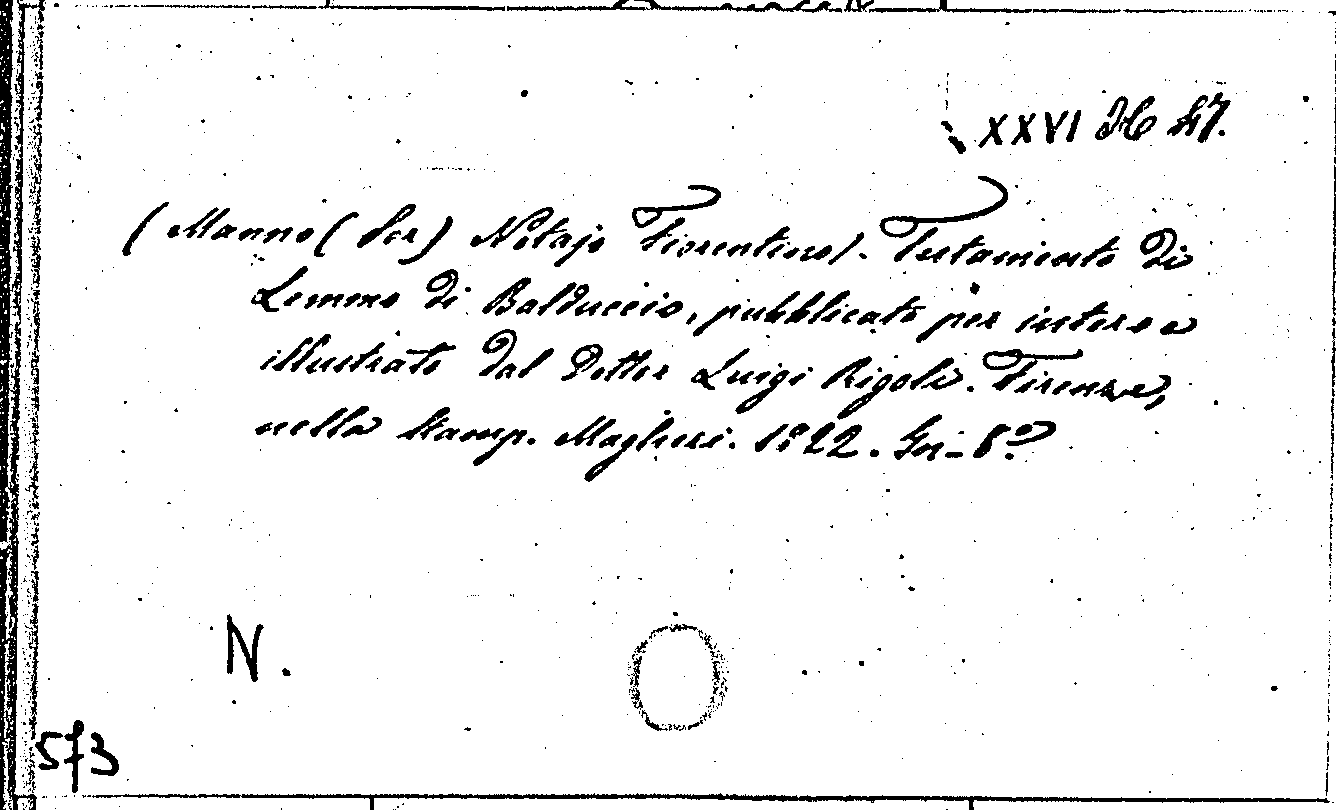 XXVI
(Manno (Ser) Notajo Fiorentino). Testamento di
Lemmo di Balduccio, pubblicato per intero e
illustrato dal Dottor Luigi Rigoli. Firenze,
nella Stamp. Magheri. 1822. In-8º
N.
573